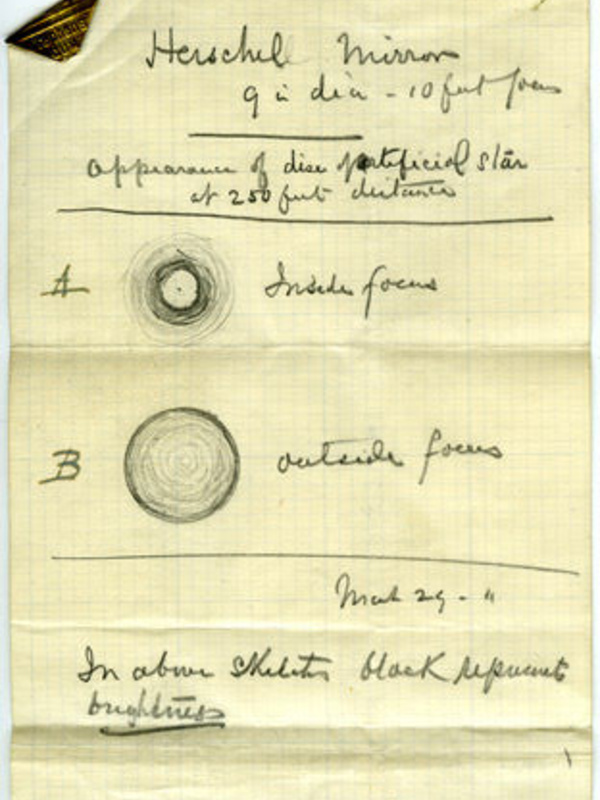 Herschel Mirror
9 in dia - 10 feet focus
appearance of disc of artificial star
at 250 feet distance
A Inside focus
B outside focus
Mch 29 - "
In above sketches black represents
brightness